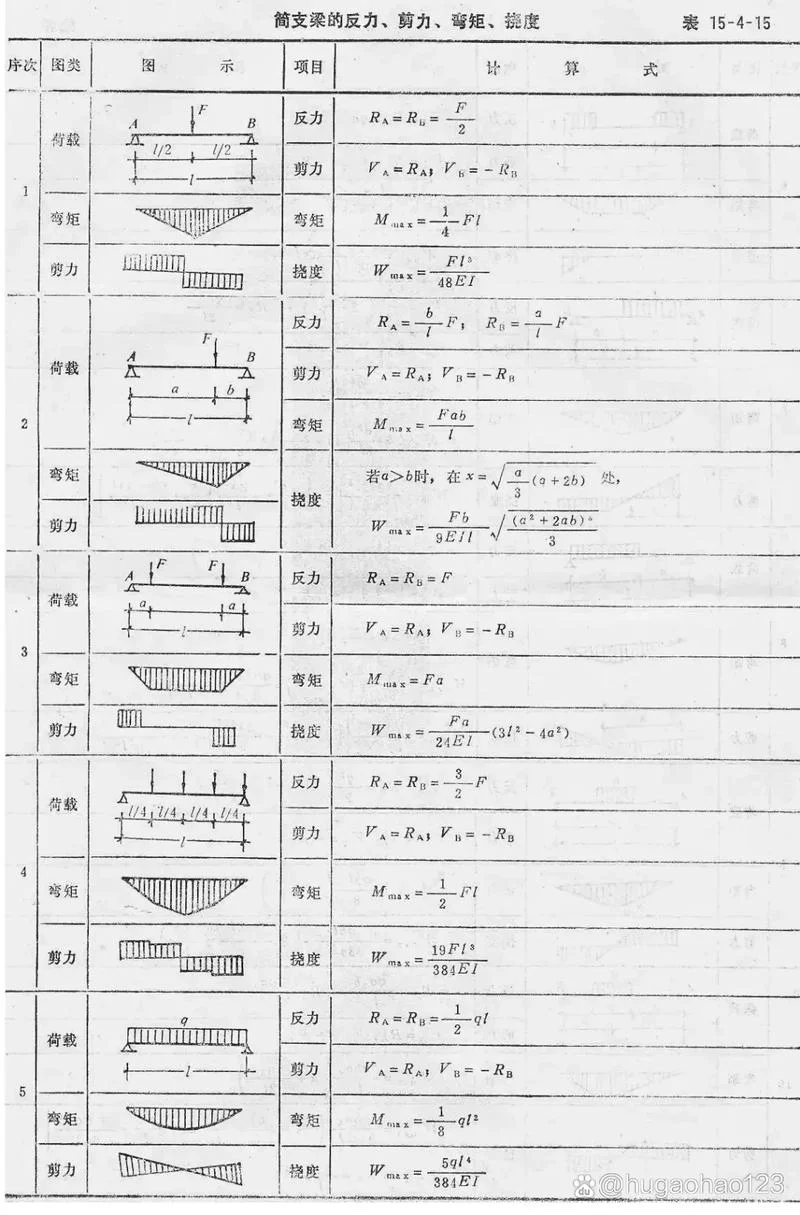 简支梁的反力、剪力、弯矩、挠度 表 15-4-15
序次 图类 图 示 项目 计 算 式
1
荷载
F
A B
l/2 l/2
l
反力 R_A=R_B=F/2
剪力 V_A=R_A; V_B=-R_B
弯矩 弯矩 M_max=1/4 Fl
剪力 挠度 W_max=Fl³/48EI
2
荷载
F
A B
a b
l
反力 R_A=b/l F, R_B=a/l F
剪力 V_A=R_A; V_B=-R_B
弯矩 M_max=Fab/l
弯矩
剪力
挠度 若a>b时, 在 x=√(a/3 (a+2b)) 处,
W_max=Fb/9EIl √((a²+2ab)³/3)
3
荷载
F F
A B
a a
l
反力 R_A=R_B=F
剪力 V_A=R_A; V_B=-R_B
弯矩 弯矩 M_max=Fa
剪力 挠度 W_max=Fa/24EI (3l²-4a²)
4
荷载
l/4 l/4 l/4 l/4
l
反力 R_A=R_B=3/2 F
剪力 V_A=R_A; V_B=-R_B
弯矩 弯矩 M_max=1/2 Fl
剪力 挠度 W_max=19Fl³/384EI
5
荷载
q
l
反力 R_A=R_B=1/2 ql
剪力 V_A=R_A; V_B=-R_B
弯矩 弯矩 M_max=1/8 ql²
剪力 挠度 W_max=5ql⁴/384EI
@hugaohao123